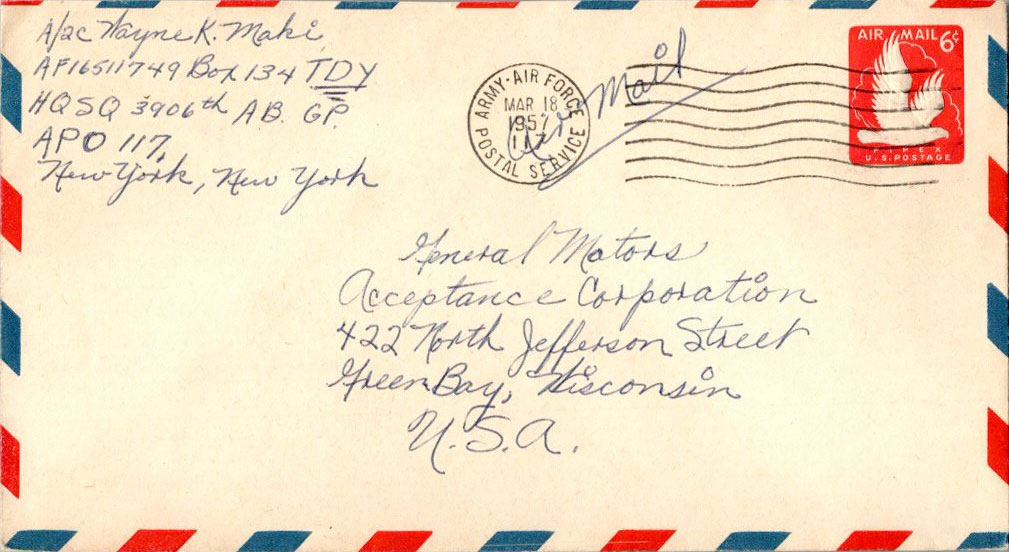 A/2c Wayne K. Maki
AF16511749 Box 134 TDY
HQ SQ 3906th AB. GP.
APO 117,
New York, New York
ARMY-AIR FORCE
MAR 18
1957
117
POSTAL SERVICE
Air Mail
AIR MAIL 6¢
FIPEX
U.S. POSTAGE
General Motors
Acceptance Corporation
422 North Jefferson Street
Green Bay, Wisconsin
U.S.A.